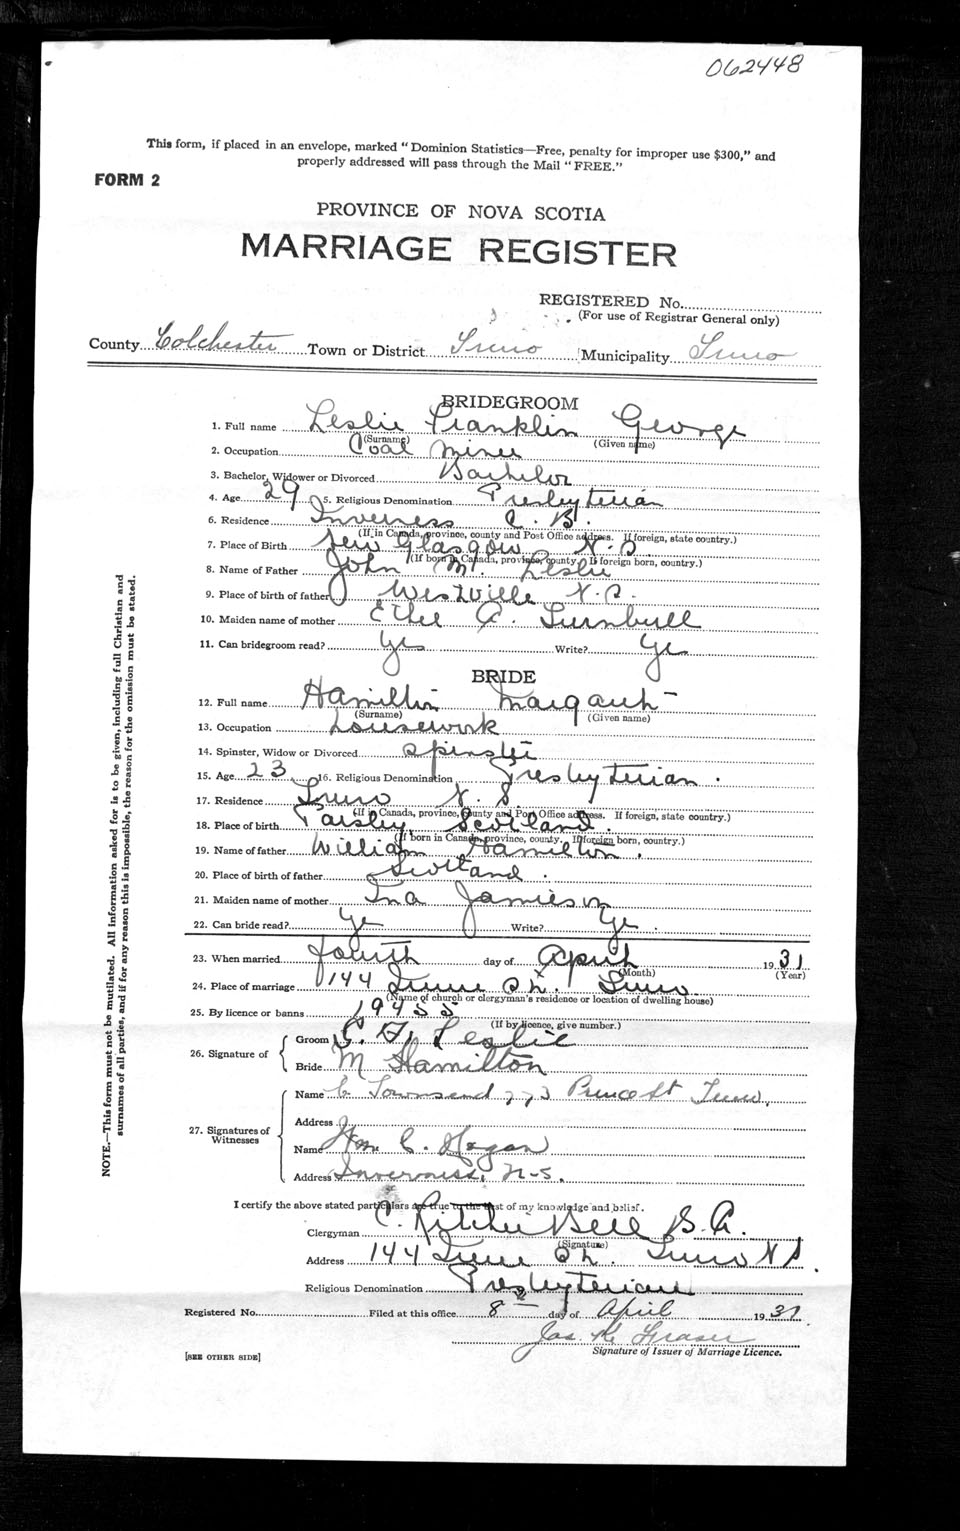 062448
This form, if placed in an envelope, marked "Dominion Statistics—Free, penalty for improper use $300," and
properly addressed will pass through the Mail "FREE."
FORM 2
PROVINCE OF NOVA SCOTIA
MARRIAGE REGISTER
REGISTERED No.
(For use of Registrar General only)
County Colchester Town or District Truro Municipality Truro
BRIDEGROOM
1. Full name Leslie Franklin George
(Surname) (Given name)
2. Occupation Coal Miner
3. Bachelor, Widower or Divorced Bachelor
4. Age 29 5. Religious Denomination Presbyterian
6. Residence Inverness C. B.
(If in Canada, province, county and Post Office address. If foreign, state country.)
7. Place of Birth New Glasgow N.S.
(If born in Canada, province, county. If foreign born, country.)
8. Name of Father John M. Leslie
9. Place of birth of father Westville N.S.
10. Maiden name of mother Ethel A. Turnbull
11. Can bridegroom read? Yes Write? Yes
BRIDE
12. Full name Hamilton Margaret
(Surname) (Given name)
13. Occupation Housework
14. Spinster, Widow or Divorced Spinster
15. Age 23 16. Religious Denomination Presbyterian.
17. Residence Truro N. S.
(If in Canada, province, county and Post Office address. If foreign, state country.)
18. Place of birth Paisley Scotland.
(If born in Canada, province, county. If foreign born, country.)
19. Name of father William Hamilton.
20. Place of birth of father Scotland.
21. Maiden name of mother Ina Jamieson
22. Can bride read? Yes Write? Yes.
23. When married fourth day of April 1931
(Month) (Year)
24. Place of marriage 144 St. Truro
(Name of church or clergyman's residence or location of dwelling house)
25. By licence or banns 19455
(If by licence, give number.)
26. Signature of
Groom G. F. Leslie
Bride M Hamilton
27. Signatures of Witnesses
Name C Townsend 773 Prince St Truro,
Address
Name Wm C. Hogan
Address Inverness, N-S.
I certify the above stated particulars are true to the best of my knowledge and belief.
Clergyman C. Ritchie Bell B.A.
(Signature)
Address 144 St. Truro N S.
Religious Denomination Presbyterian
Registered No. Filed at this office 8 day of April 1931
Jas. Fraser
Signature of Issuer of Marriage Licence.
[SEE OTHER SIDE]
NOTE.—This form must not be mutilated. All information asked for is to be given, including full Christian and
surnames of all parties, and if for any reason this is impossible, the reason for the omission must be stated.